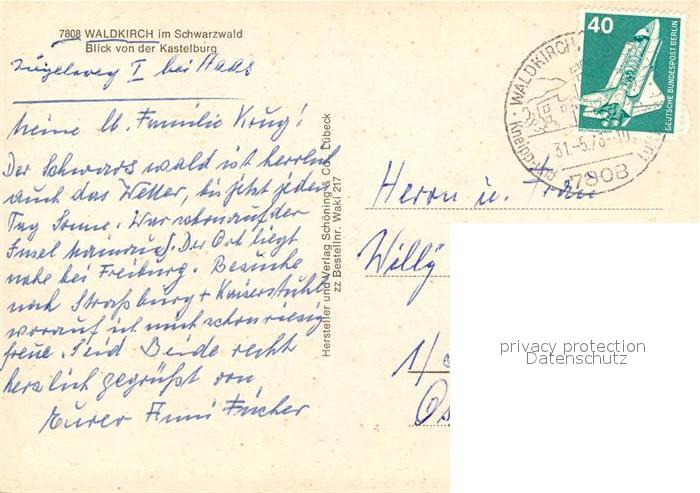 7808 WALDKIRCH im Schwarzwald
Blick von der Kastelburg
bei Haas
Meine lb. Familie Krug!
Der Schwarzwald ist herrlich
auch das Wetter, bis jetzt jeden
Tag Sonne. War schon auf der
Insel Mainau. Der Ort liegt
nahe bei Freiburg. Besuche
noch Straßburg + Kaiserstuhl
worauf ich mich schon riesig
freue. Seid Beide recht
herzlich gegrüßt von
Eurer Anni Fischer
Hersteller und Verlag Schöning & Co., Lübeck
zz Bestellnr. Waki 217
40
DEUTSCHE BUNDESPOST BERLIN
WALDKIRCH
31.-5.76-10
7808
Herrn u. Frau
Willy
1/
Os
privacy protection
Datenschutz